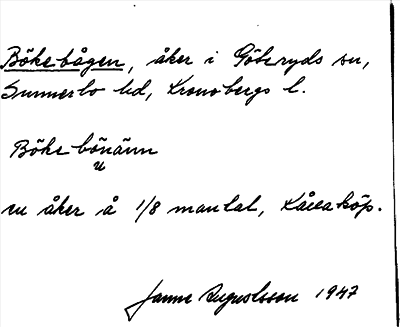 Bökebågen, åker i Göteryds sn,
Sunnerbo hd, Kronobergs l.
Böke bőnänn
u
en åker å 1/8 mantal, Kåraköp.
Janne Augustsson 1947